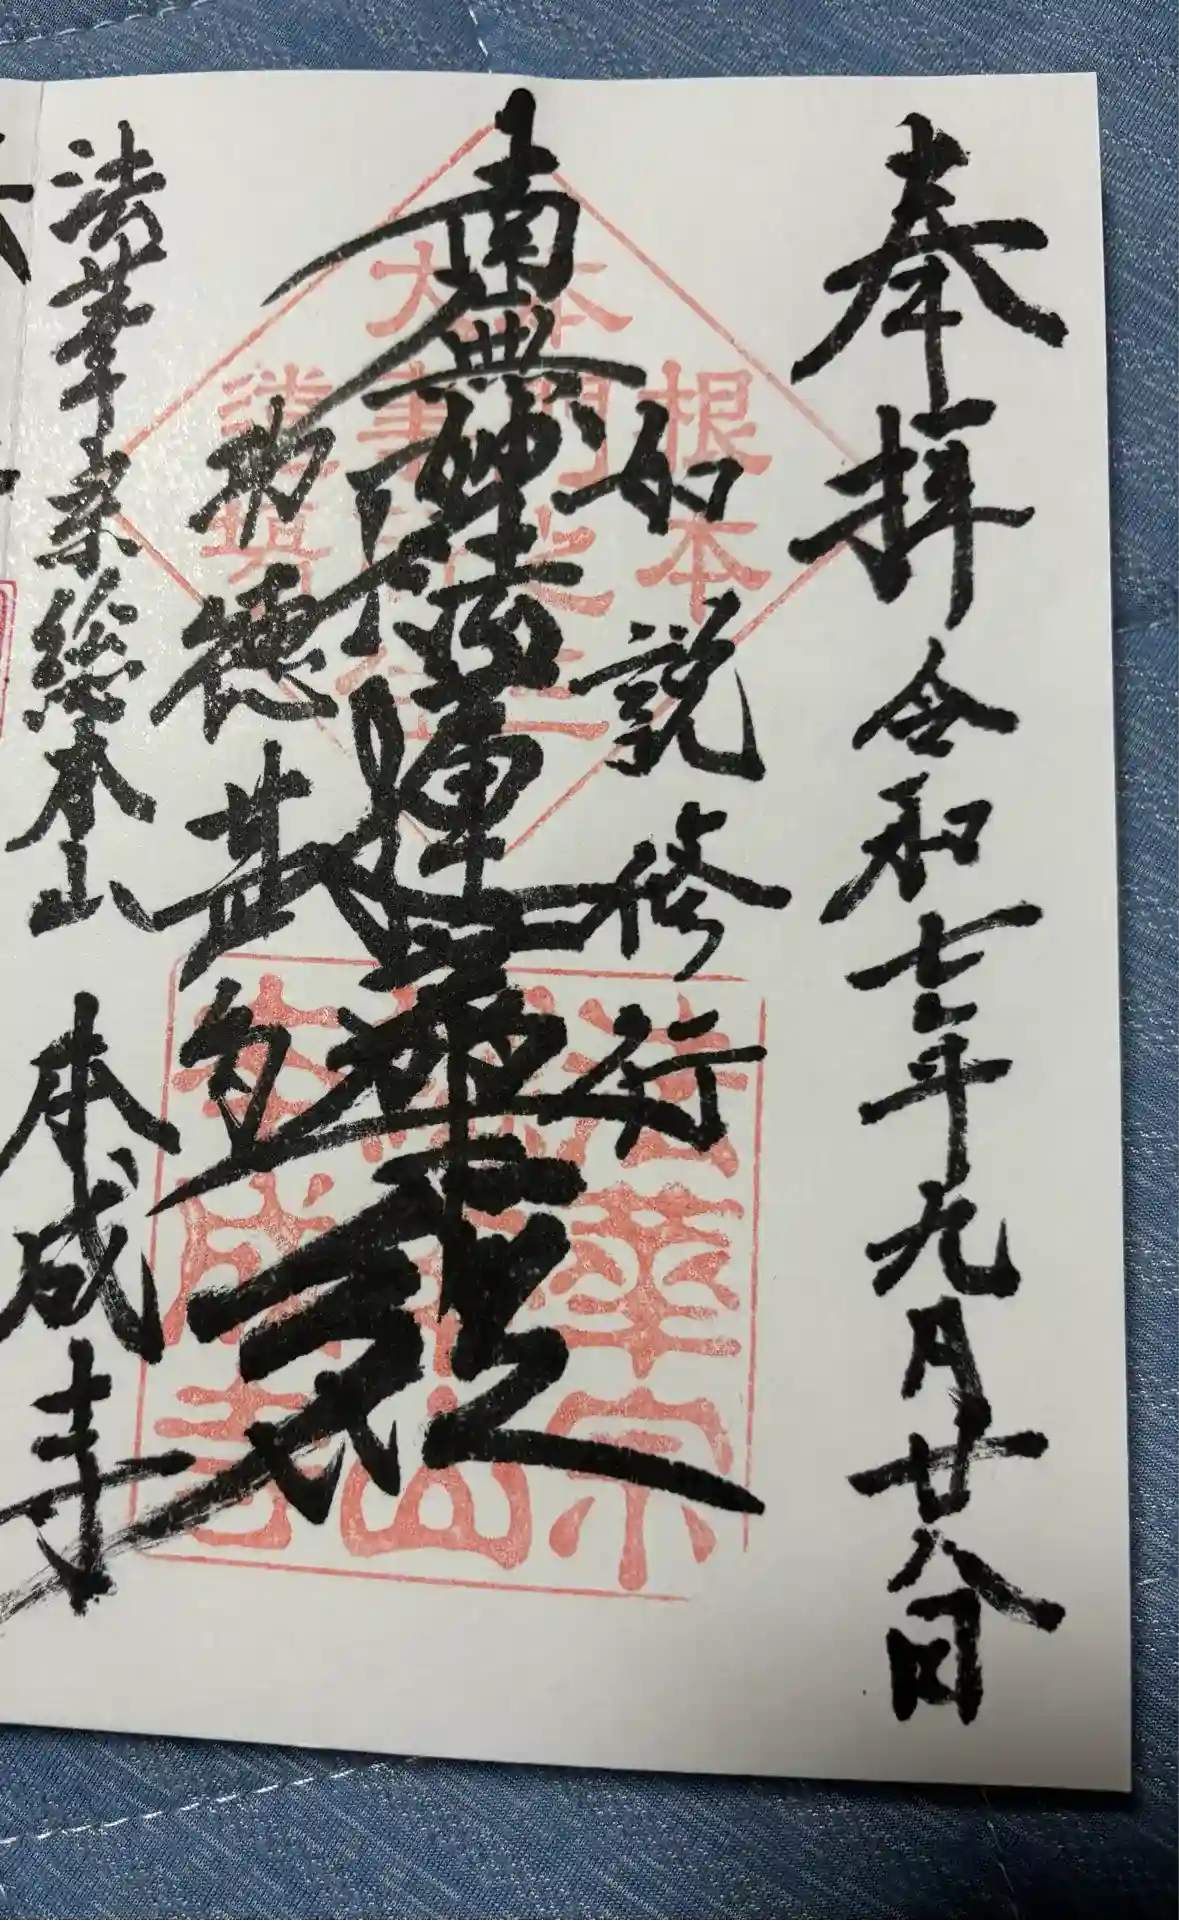 奉拝 令和七年九月廿八日
如説修行
南無妙法蓮華経
功徳甚多
法華宗総本山 本成寺
根本
法華宗
総本山
本成寺